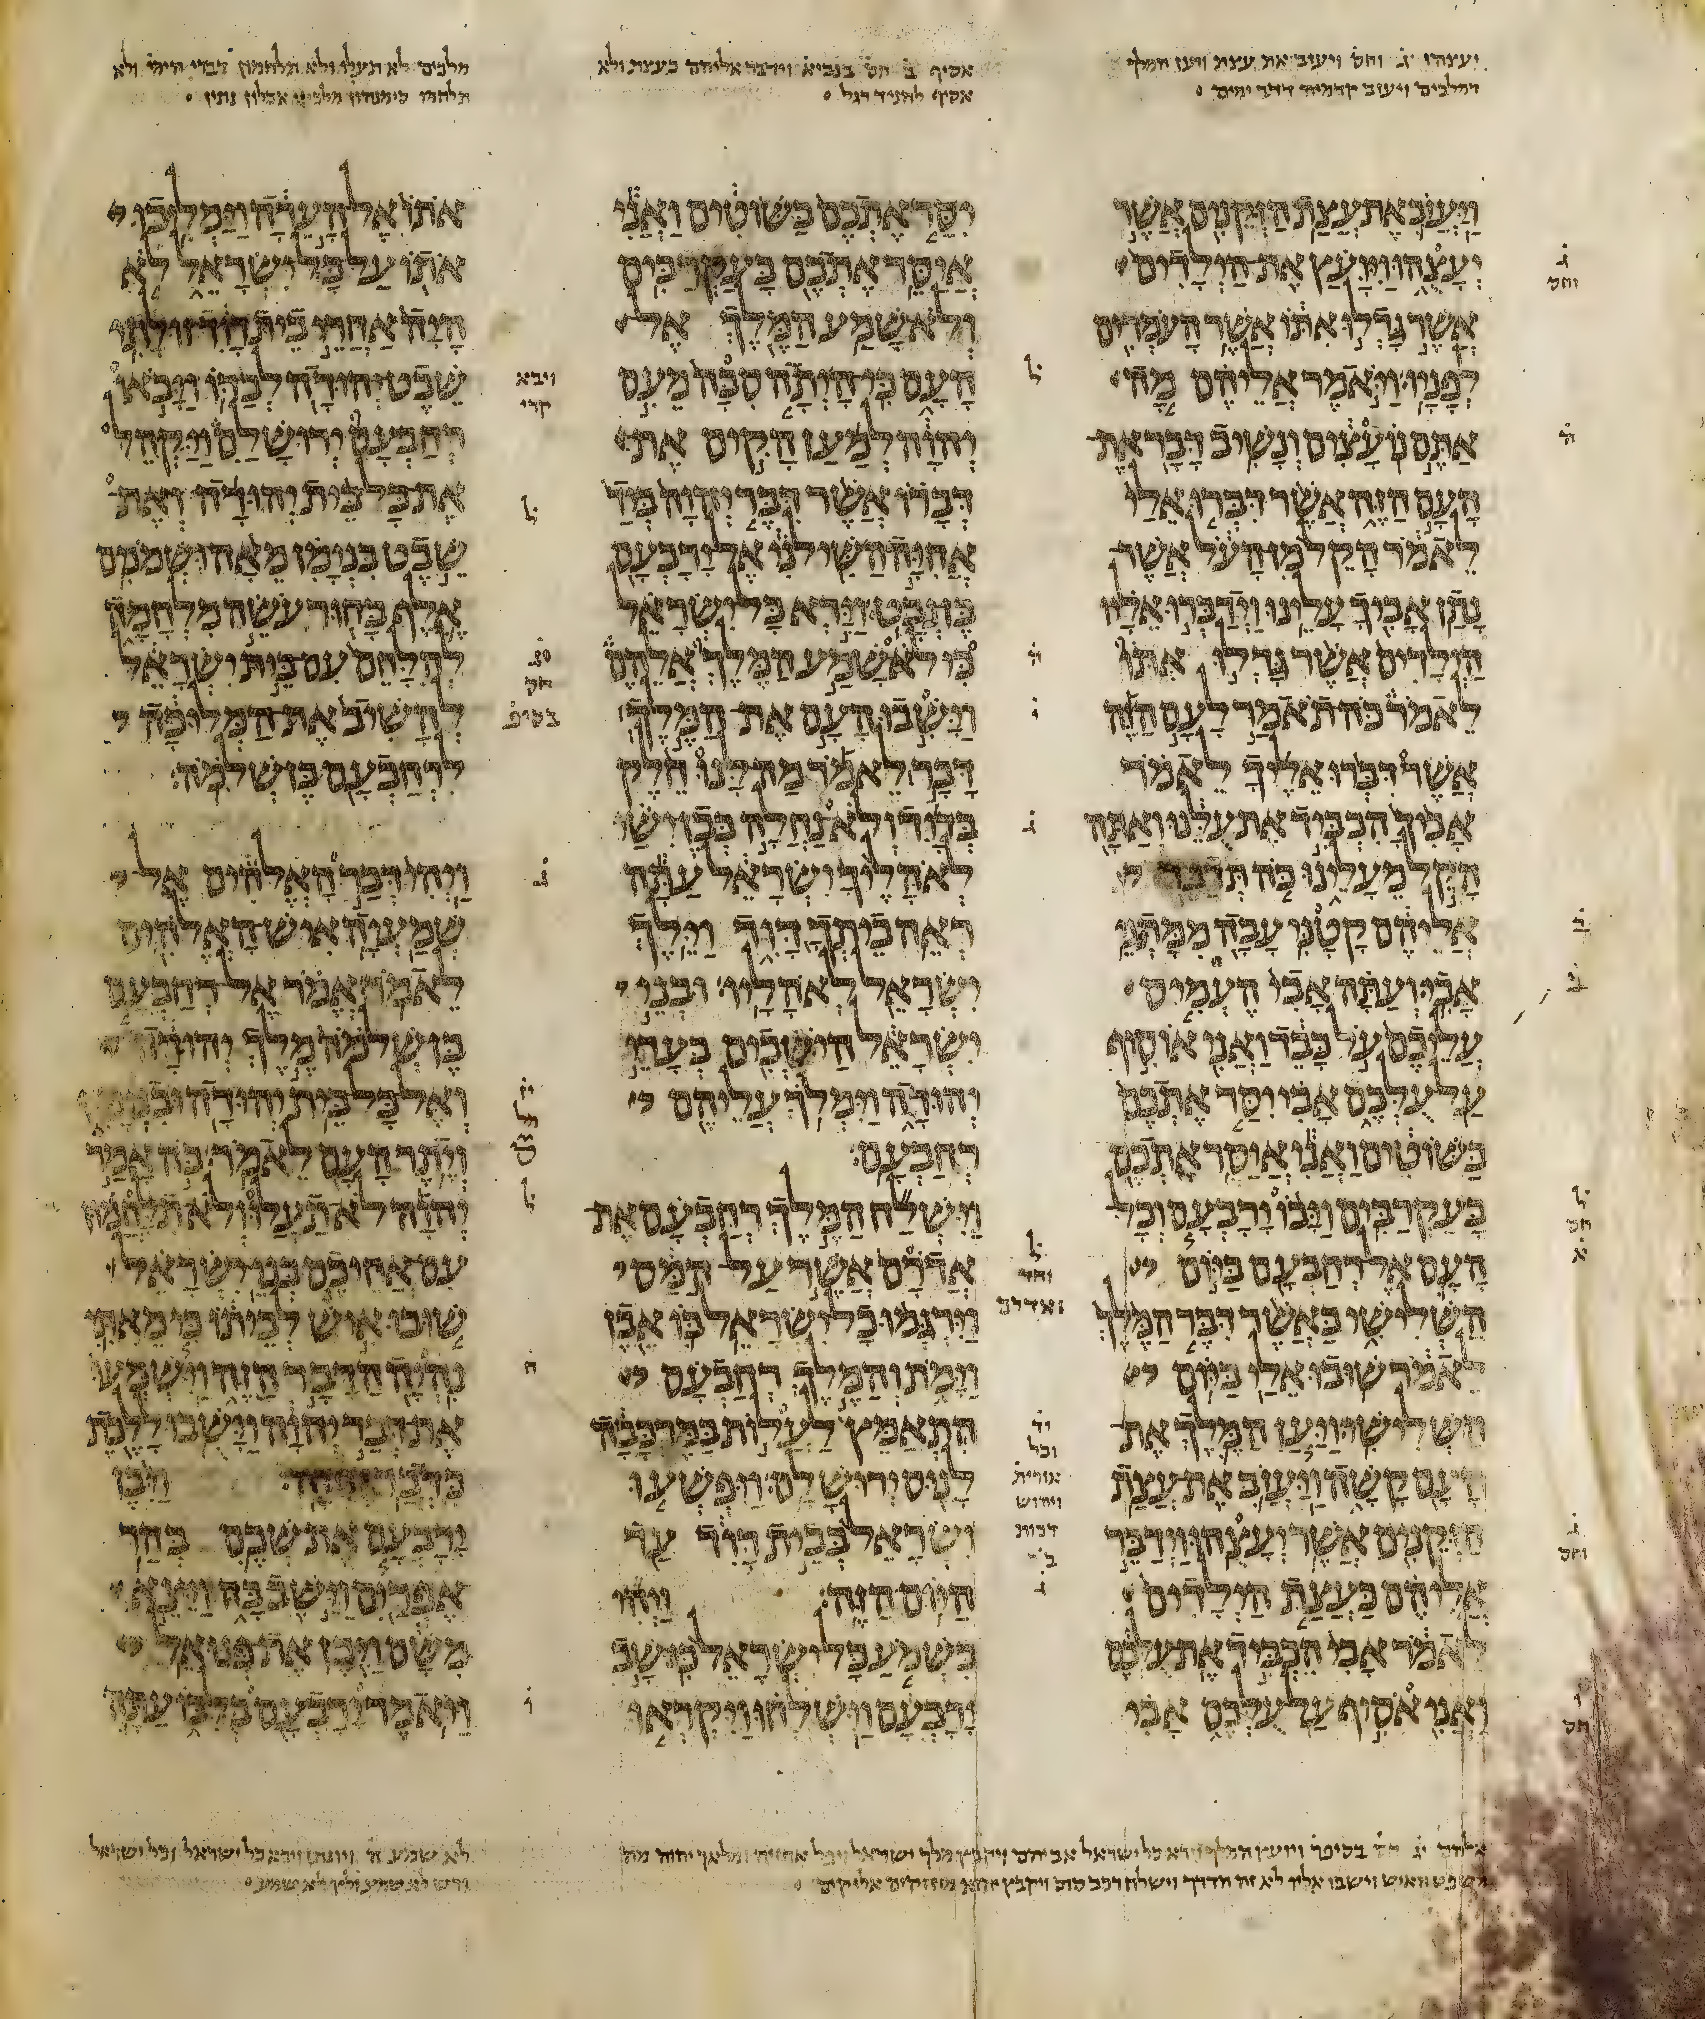 יעצהו ג וחס ויעזב את עצת ויועץ המלך
דמלכים ויעזב קדמיה דדבר ימים
ויעזב את עצת הזקנים אשר
יעצהו ויועץ את הילדים
אשר גדלו אתו אשר העמדים
לפניו ויאמר אליהם מה
אתם נועצים ונשיב דבר את
העם הזה אשר דברו אלי
לאמר הקל מן העל אשר
נתן אביך עלינו וידברו אליו
הילדים אשר גדלו אתו
לאמר כה תאמר לעם הזה
אשר דברו אליך לאמר
אביך הכביד את עלנו ואתה
הקל מעלינו כה תדבר
אליהם קטני עבה ממתני
אבי ועתה אבי העמיס
עליכם על כבד ואני אוסיף
על עלכם אבי יסר אתכם
בשוטים ואני איסר אתכם
בעקרבים ויבו ירבעם וכל
העם אל רחבעם ביום
השלישי כאשר דבר המלך
לאמר שובו אלי ביום
השלישי ויען המלך את
העם קשה ויעזב את עצת
הזקנים אשר יעצהו וידבר
אליהם כעצת הילדים
לאמר אבי הכביד את עלכם
ואני אסיף על עלכם אבי
אסיף ב חס בנביא וידבר אליהם כעצת ולא
אסיף להניד רגל
יסר אתכם בשוטים ואני
איסר אתכם בעקרבים
ולא שמע המלך אל
העם כי היתה סבה מעם
יהוה למען הקים את
דברו אשר דבר יהוה ביד
אחיה השילני אל ירבעם
בן נבט וירא כל ישראל
כי לא שמע המלך אלהם
וישבו העם את המלך
דבר לאמר מה לנו חלק
בדוד ולא נחלה בבן ישי
לאהליך ישראל עתה
ראה ביתך דוד וילך
ישראל לאהליו ובני
ישראל הישבים בערי
יהודה וימלך עליהם
רחבעם
וישלח המלך רחבעם את
אדרם אשר על המס
וירגמו כל ישראל בו אבן
וימת והמלך רחבעם
התאמץ לעלות במרכבה
לנוס ירושלם ויפשעו
ישראל בבית דוד עד
היום הזה ויהי
כשמע כל ישראל כי שב
ירבעם וישלחו ויקראו
מלכים לא תעלו ולא תלחמון דברי הימים ולא
תלחמו
אתו אל העדה וימליכו
אתו על כל ישראל לא
היה אחרי בית דוד זולתי
שבט יהודה לבדו ויבאו
רחבעם ירושלם ויקהל
את כל בית יהודה ואת
שבט בנימן מאה ושמנים
אלף בחור עשה מלחמה
להלחם עם בית ישראל
להשיב את המלוכה
לרחבעם בן שלמה
ויהי דבר האלהים אל
שמעיה איש האלהים
לאמר אמר אל רחבעם
בן שלמה מלך יהודה
ואל כל בית יהודה ובנימין
ויתר העם לאמר כה אמר
יהוה לא תעלו ולא תלחמון
עם אחיכם בני ישראל
שובו איש לביתו כי מאתי
נהיה הדבר הזה וישמעו
את דבר יהוה וישבו ללכת
כדבר יהוה ויבן
ירבעם את שכם בהר
אפרים וישב בה ויצא
משם ויבן את פנואל
ויאמר ירבעם בלבו עתה